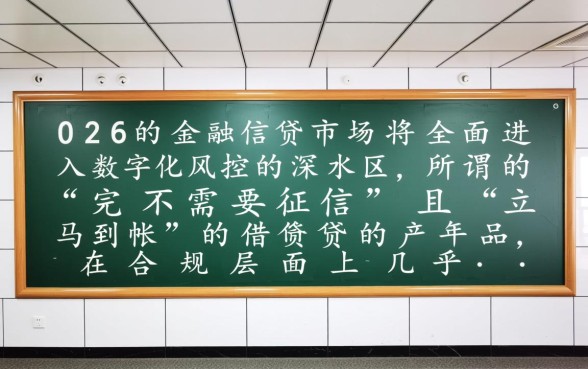 026的金融信贷市场将全面进
入数字化风控的深水区，所谓的
“完不需要征信”且“立
马到帐”的借赁贷的产年品，
在合规层面上几乎··